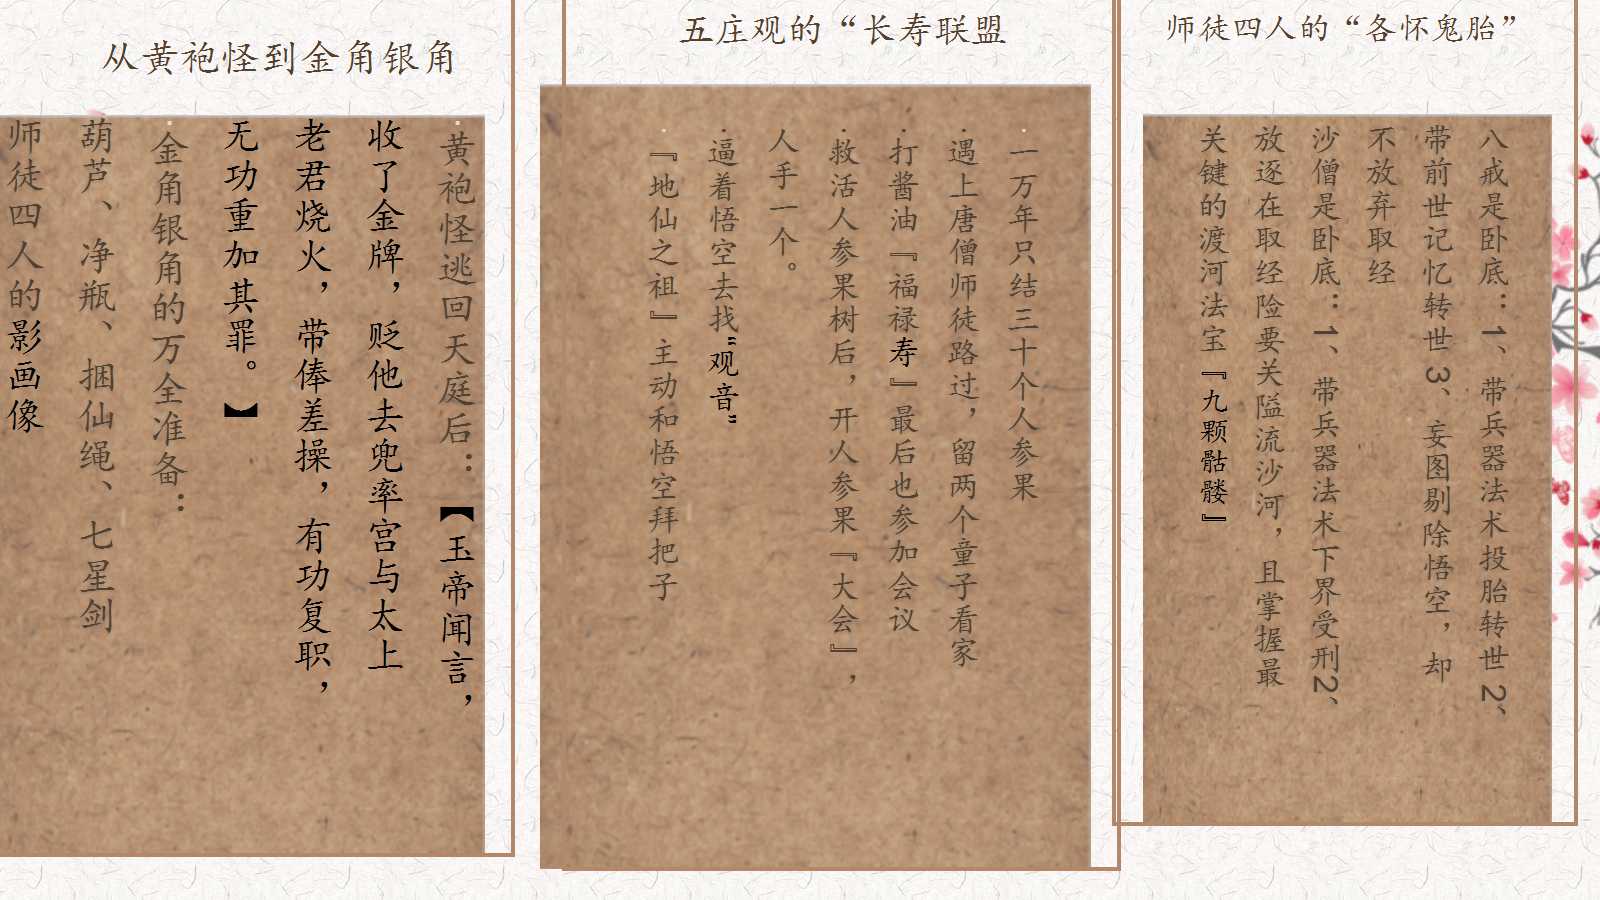 师徒四人的“各怀鬼胎”
八戒是卧底：1、带兵器法术投胎转世2、
带前世记忆转世3、妄图剔除悟空，却
不放弃取经
沙僧是卧底：1、带兵器法术下界受刑2、
放逐在取经险要关隘流沙河，且掌握最
关键的渡河法宝『九颗骷髅』
五庄观的“长寿联盟
一万年只结三十个人参果
遇上唐僧师徒路过，留两个童子看家
打酱油『福禄寿』最后也参加会议
救活人参果树后，开人参果『大会』，
人手一个。
逼着悟空去找“观音”
『地仙之祖』主动和悟空拜把子
从黄袍怪到金角银角
黄袍怪逃回天庭后：【玉帝闻言，
收了金牌，贬他去兜率宫与太上
老君烧火，带俸差操，有功复职，
无功重加其罪。】
金角银角的万全准备：
葫芦、净瓶、捆仙绳、七星剑
师徒四人的影画像